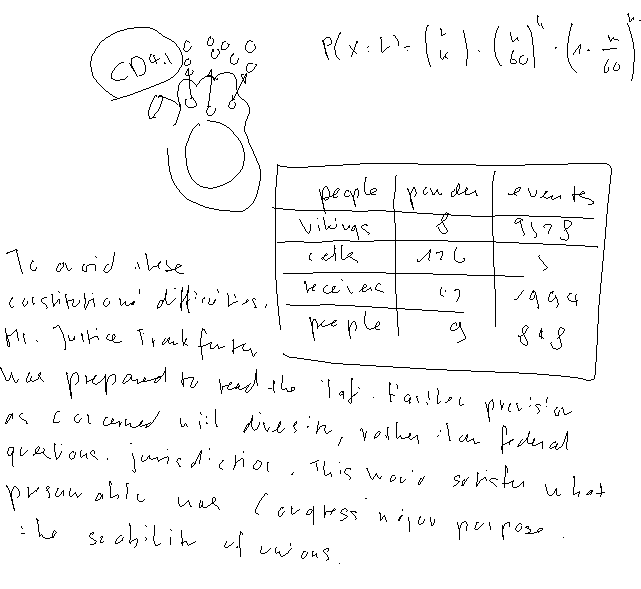 CD4.1
P(X=k) = (n k) · (n/60)^k · (1 - n/60)
people ponder events
vikings 8
cells 126
receivers 1994
people 9 8*8
To avoid these
constitutional difficulties,
Mr. Justice Frankfurter
was prepared to read the Taft-Hartley provision
as concerned with diversity, rather than federal
questions, jurisdiction. This would satisfy what
presumable was Congress major purpose.
the stability of unions.